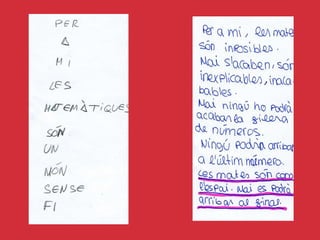 PER
A
MI
LES
MATEMÀTIQUES
SÓN
UN
MÓN
SENSE
FI
Per a mi, les mate
són imposibles.
Mai s'acaben, són
inexplicables, inaca
bables.
Mai ningú ho podrà
acabar la filera
de números.
Ningú podrà arribar
a l'últim número.
Les mates són com
l'espai. Mai es podrà
arribar al final.